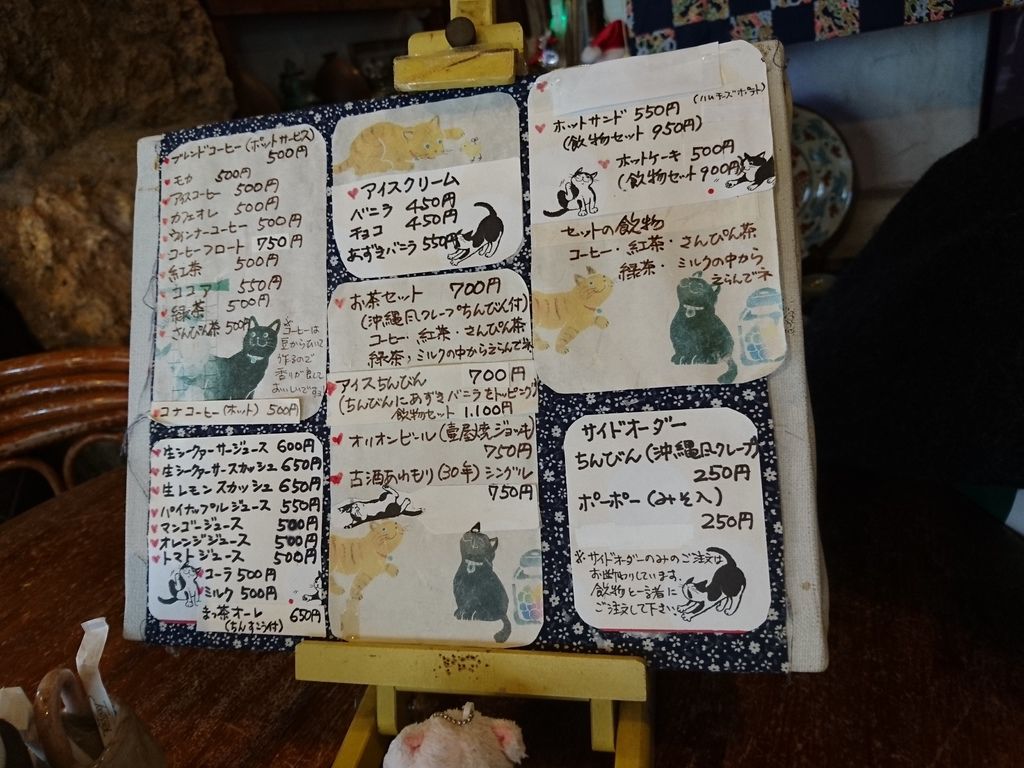 ブレンドコーヒー(ポットサービス)
500円
モカ 500円
アイスコーヒー 500円
カフェオレ 500円
ウィンナーコーヒー 500円
コーヒーフロート 750円
紅茶 500円
ココア 550円
緑茶 500円
さんぴん茶 500円
※コーヒーは
豆からひいて
作るので
香りが良くて
おいしいですよ
コナコーヒー(ホット) 500円
生シークァーサージュース 600円
生シークァーサースカッシュ 650円
生レモンスカッシュ 650円
パイナップルジュース 550円
マンゴージュース 500円
オレンジジュース 500円
トマトジュース 500円
コーラ 500円
ミルク 500円
まっ茶オーレ 650円
(ちんすこう付)
アイスクリーム
バニラ 450円
チョコ 450円
あずきバニラ 550円
お茶セット 700円
(沖縄風クレープちんびん付)
コーヒー・紅茶・さんぴん茶
緑茶、ミルクの中からえらんでネ
アイスちんびん 700円
(ちんびんにあずきバニラをトッピング)
飲物セット 1,100円
オリオンビール(壺屋焼ジョッキ)
750円
古酒あわもり(30年)シングル
750円
(ハムチーズホット)
ホットサンド 550円
(飲物セット 950円)
ホットケーキ 500円
(飲物セット 900円)
セットの飲物
コーヒー・紅茶・さんぴん茶
緑茶・ミルクの中から
えらんでネ
サイドオーダー
ちんびん(沖縄風クレープ)
250円
ポーポー(みそ入)
250円
※サイドオーダーのみのご注文は
お断りしています。
飲物と一諸に
ご注文して下さい。